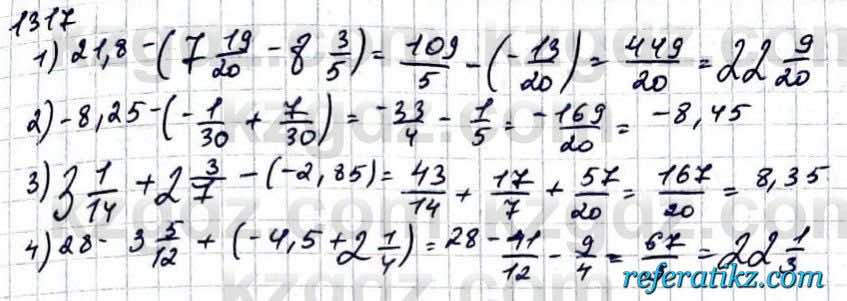 1317
1) 21,8 - (7 19/20 - 8 3/5) = 109/5 - (-13/20) = 449/20 = 22 9/20
2) -8,25 - (-1/30 + 7/30) = -33/4 - 1/5 = -169/20 = -8,45
3) 3 1/14 + 2 3/7 - (-2,85) = 43/14 + 17/7 + 57/20 = 167/20 = 8,35
4) 28 - 3 5/12 + (-4,5 + 2 1/4) = 28 - 41/12 - 9/4 = 67/3 = 22 1/3
referatikz.com